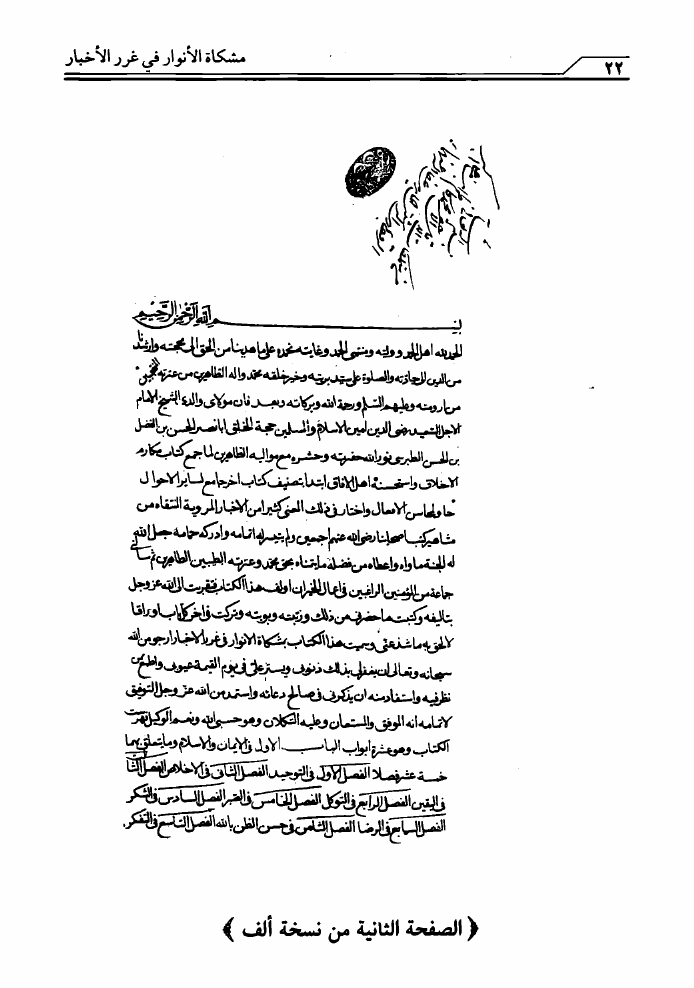 ٢٢
مشكاة الأنوار في غرر الأخبار
بسم الله الرحمن الرحيم
الحمد لله اهل الحمد ووليه ومنتهى الحمد وغايته نحمده على ما هدينا من الحق الى محجته وارشدنا
من الدين الى جادته والصلوة على سيد بريته وخير خلقه محمد واله الطاهرين من عترته
من ارومته وعليهم السلم ورحمة الله وبركاته وبعد فان مولاى والدى الشيخ الامام
الاجل السعيد رضى الدين امين الاسلام والمسلمين حجة الخلق ابا نصر الحسن بن الفضل
بن الحسن الطبرسى نور الله حضرته وحشره مع مواليه الطاهرين لما جمع كتاب مكارم
الاخلاق واستحسنه اهل الافاق ابتدا بتصنيف كتاب اخر جامع لساير الاحوال
حاو لمحاسن الافعال واختار فى ذلك المعنى كثيرا من الاخبار المروية المنتقاه من
مشاهير كتب اصحابنا رضى الله عنهم اجمعين ولم يتيسر له اتمامه وادركه حمامه جعل الله
له الجنة ماواه واعطاه من فضله ما يتمناه بحق محمد وعترته الطيبين الطاهرين ثم سالنى
جماعة من المؤمنين الراغبين فى اعمال الخيرات اولف هذا الكتاب فتقربت الى الله عز وجل
بتاليفه وكتبت ما حضرنى من ذلك ورتبته وبوبته وتركت فى اخر كل باب اوراقا
لالحق به ما شذ عنى وسميت هذا الكتاب بمشكاة الانوار فى غرر الاخبار ارجو من الله
سبحانه وتعالى ان يغفر لى بذلك ذنوبى ويستر على فى يوم القيمة عيوبى واطمع من
نظر فيه واستفاد منه ان يذكرنى فى صالح دعائه واستمد من الله عز وجل التوفيق
لاتمامه انه الموفق والمستعان وعليه التكلان وهو حسبى الله ونعم الوكيل
الكتاب وهو عشرة ابواب الباب الاول فى الايمان والاسلام وما يتعلق بهما
خمسة عشر فصلا الفصل الاول فى التوحيد الفصل الثانى فى الاخلاص الفصل الثالث
فى اليقين الفصل الرابع فى التوكل الفصل الخامس فى الصبر الفصل السادس فى الشكر
الفصل السابع فى الرضا الفصل الثامن فى حسن الظن بالله الفصل التاسع فى التفكر
﴿ الصفحة الثانية من نسخة ألف ﴾